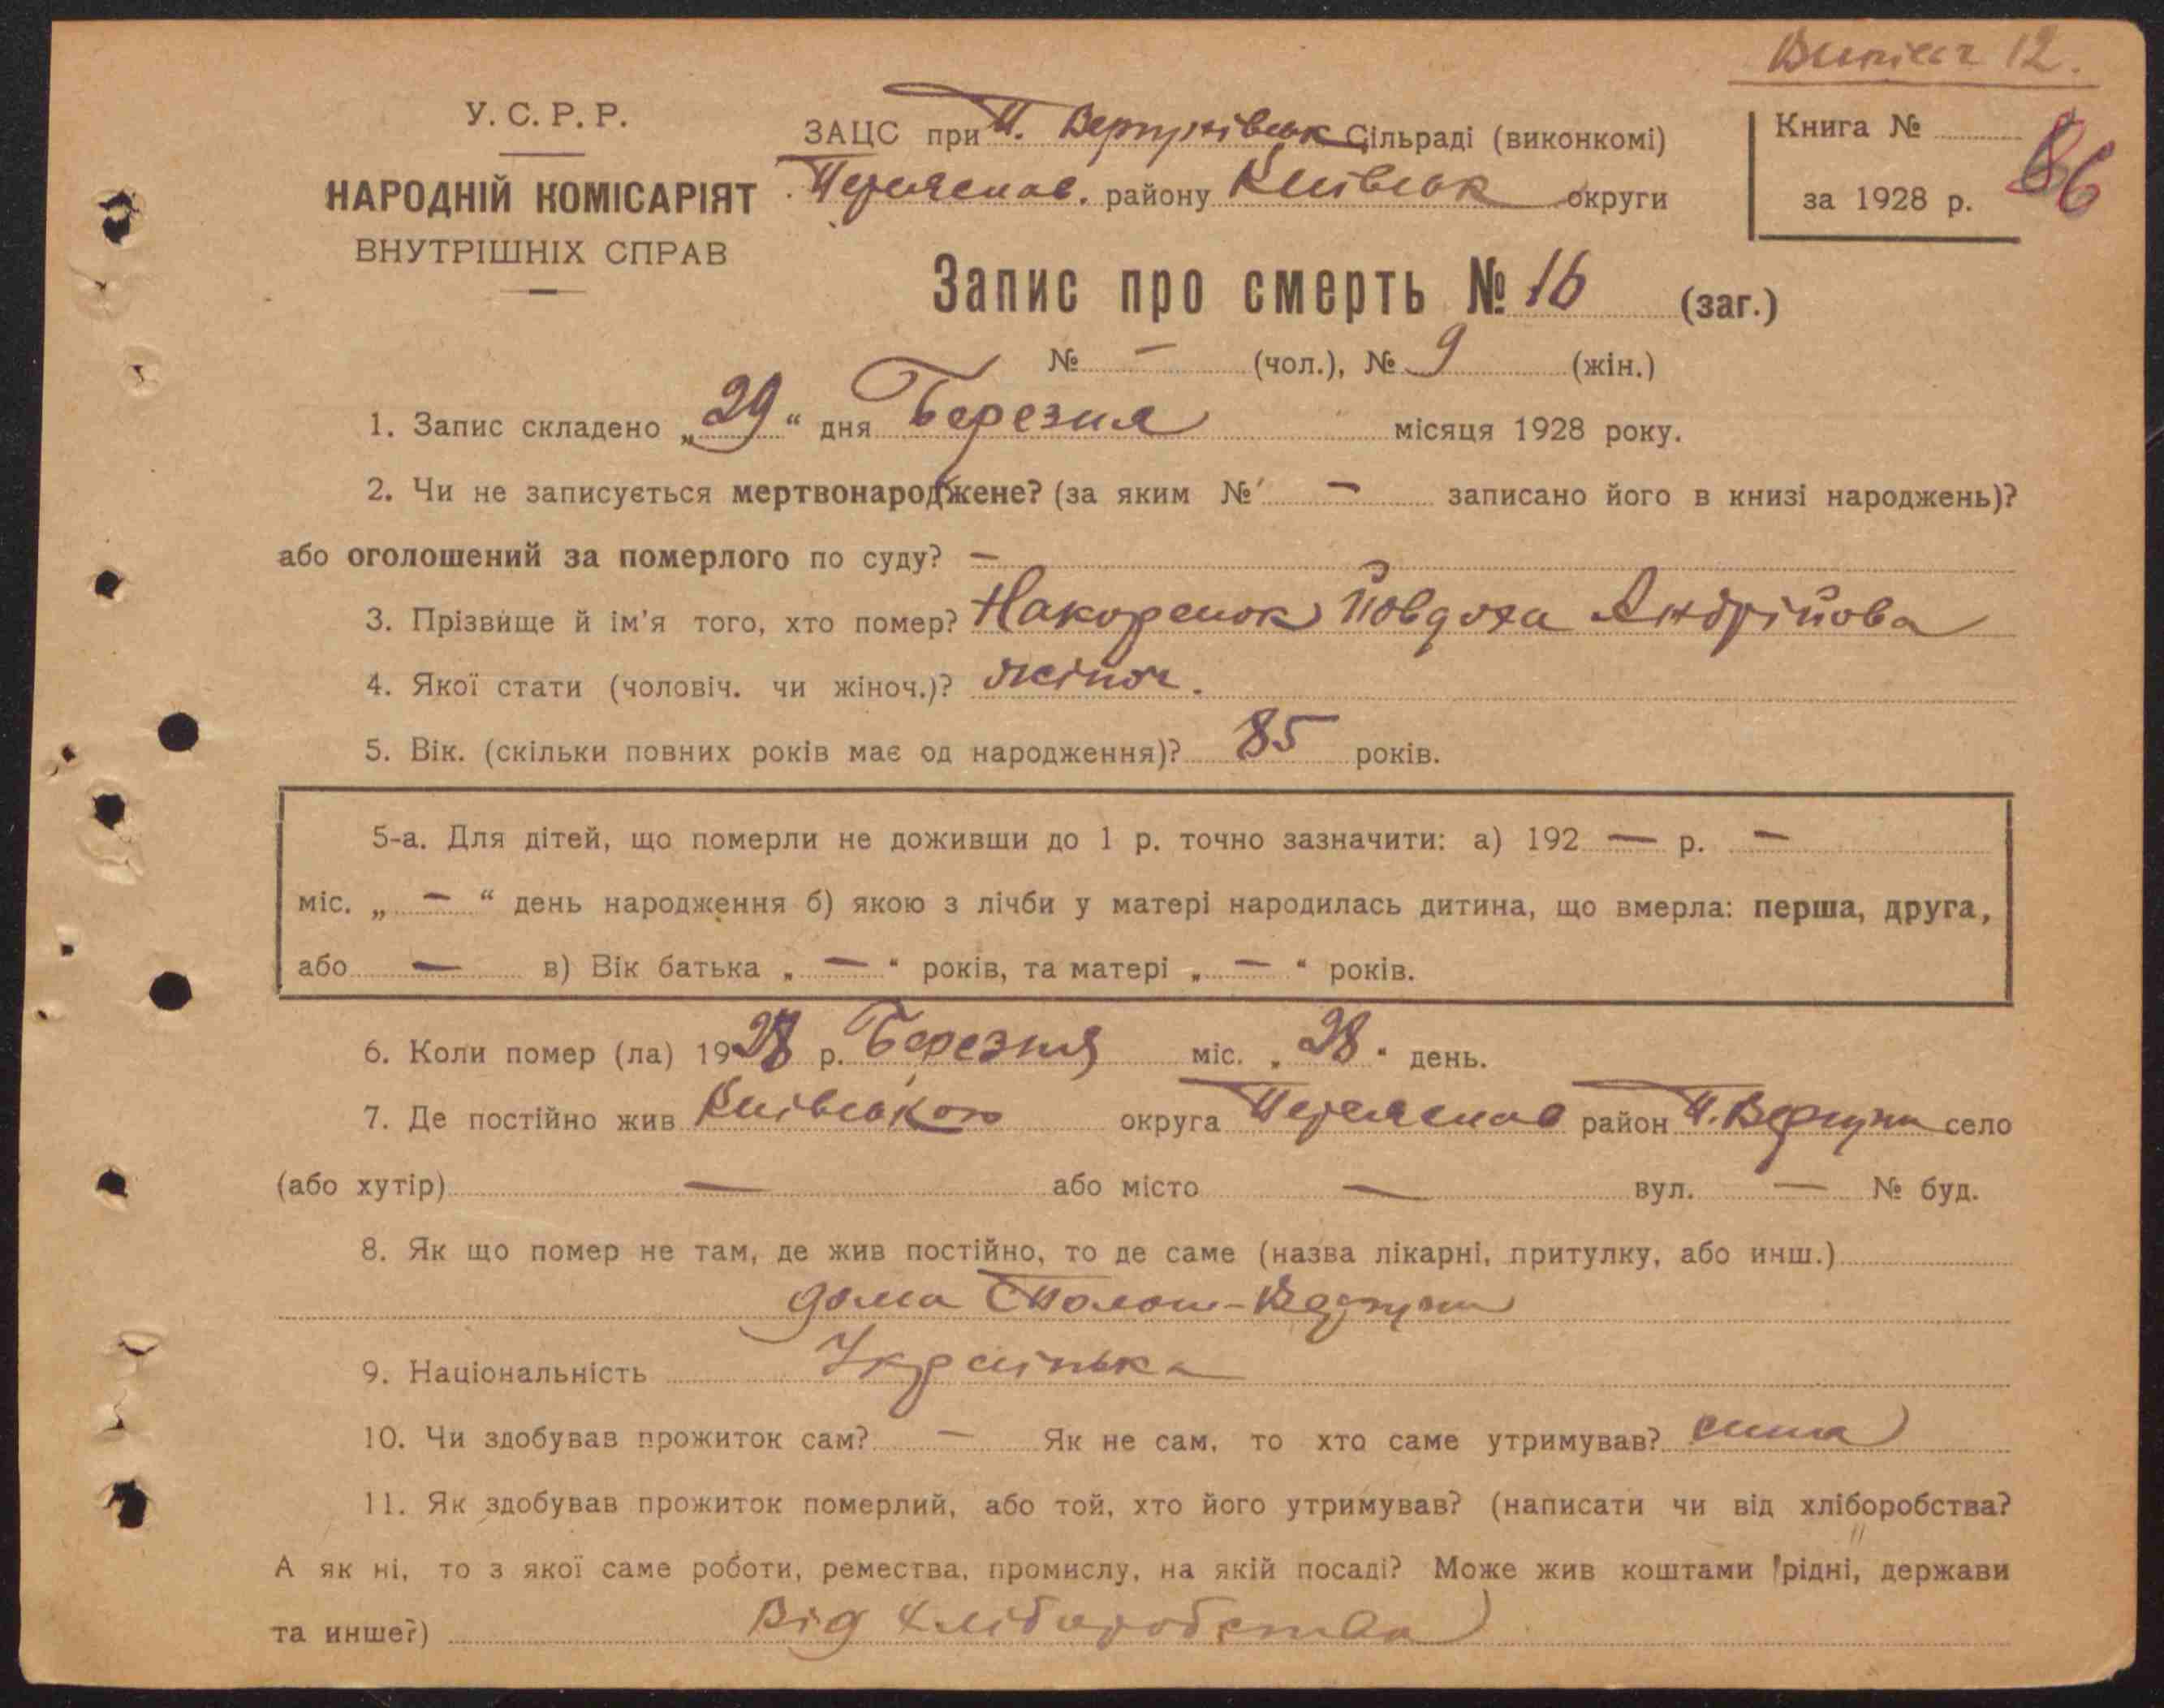 Випись 12.
У. С. Р. Р.
НАРОДНІЙ КОМІСАРІЯТ
ВНУТРІШНІХ СПРАВ
ЗАЦС при П. Вергунівськ Сільраді (виконкомі)
Переяслав. району Київськ округи
Книга №
за 1928 р.
86
Запис про смерть № 16 (заг.)
№ — (чол.), № 9 (жін.)
1. Запис складено „29“ дня Березня місяця 1928 року.
2. Чи не записується мертвонароджене? (за яким № — записано його в книзі народжень)?
або оголошений за померлого по суду? —
3. Прізвище й ім'я того, хто помер? Накоренок Йовдоха Андрійова
4. Якої стати (чоловіч. чи жіноч.)? жіноч.
5. Вік. (скільки повних років має од народження)? 85 років.
5-а. Для дітей, що померли не доживши до 1 р. точно зазначити: а) 192 — р. —
міс. „ — “ день народження б) якою з лічби у матері народилась дитина, що вмерла: перша, друга,
або — в) Вік батька „ — “ років, та матері „ — “ років.
6. Коли помер (ла) 1928 р. Березня міс. „28“ день.
7. Де постійно жив Київського округа Переяслав район П. Вергуни село
(або хутір) — або місто — вул. — № буд.
8. Як що помер не там, де жив постійно, то де саме (назва лікарні, притулку, або инш.)
дома Полог-Вергуни
9. Національність Українька
10. Чи здобував прожиток сам? — Як не сам, то хто саме утримував? сина
11. Як здобував прожиток померлий, або той, хто його утримував? (написати чи від хліборобства?
А як ні, то з якої саме роботи, ремества, промислу, на якій посаді? Може жив коштами рідні, держави
та инше?) Від хліборобства